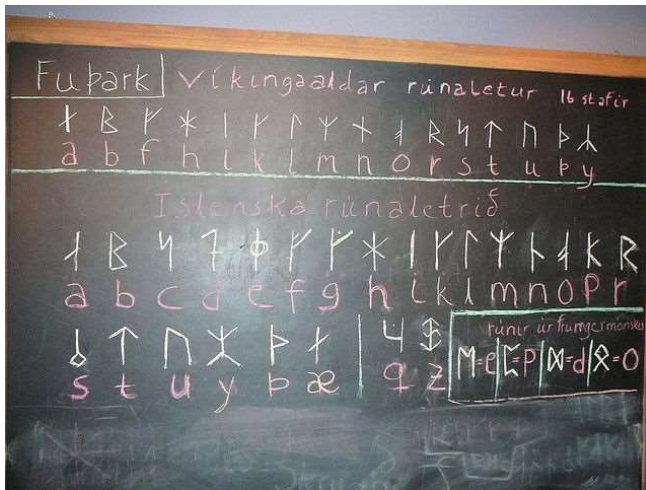 Fuþark Víkingaaldar rúnaletur 16 stafir
ᚭ ᛒ ᚠ ᚼ ᛁ ᚴ ᛚ ᛘ ᚾ ᚮ ᚱ ᛋ ᛏ ᚢ ᚦ ᛦ
a b f h i k l m n o r s t u þ y
Íslenska rúnaletrið
ᛆ ᛒ ᛋ ᛑ ᛂ ᚠ ᚵ ᚼ ᛁ ᚴ ᛚ ᛘ ᚿ ᚮ ᛕ ᚱ
a b c d e f g h i k l m n o p r
ᛏ ᚢ ᛦ ᚦ
s t u y þ æ q z
rúnir úr frumgermönsku
ᛖ=e ᛈ=p ᛞ=d ᛟ=o